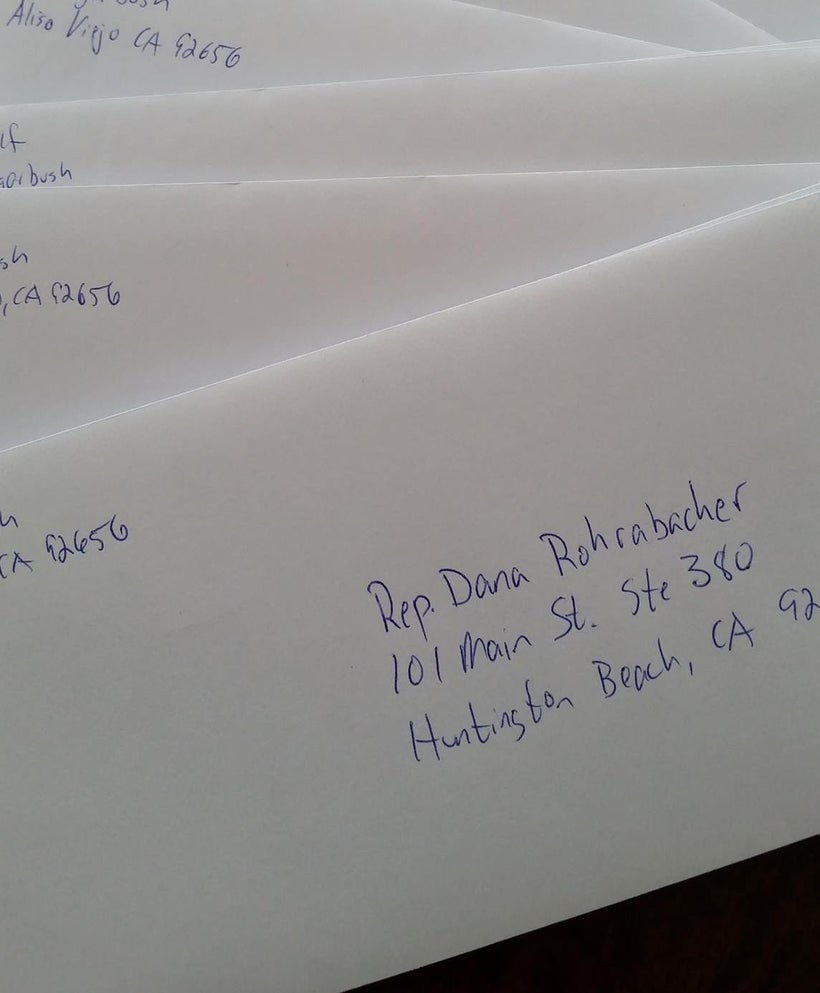 Aliso Viejo CA 92656
sh
, CA 92656
h
CA 92656
Rep. Dana Rohrabacher
101 Main St. Ste 380
Huntington Beach, CA 92